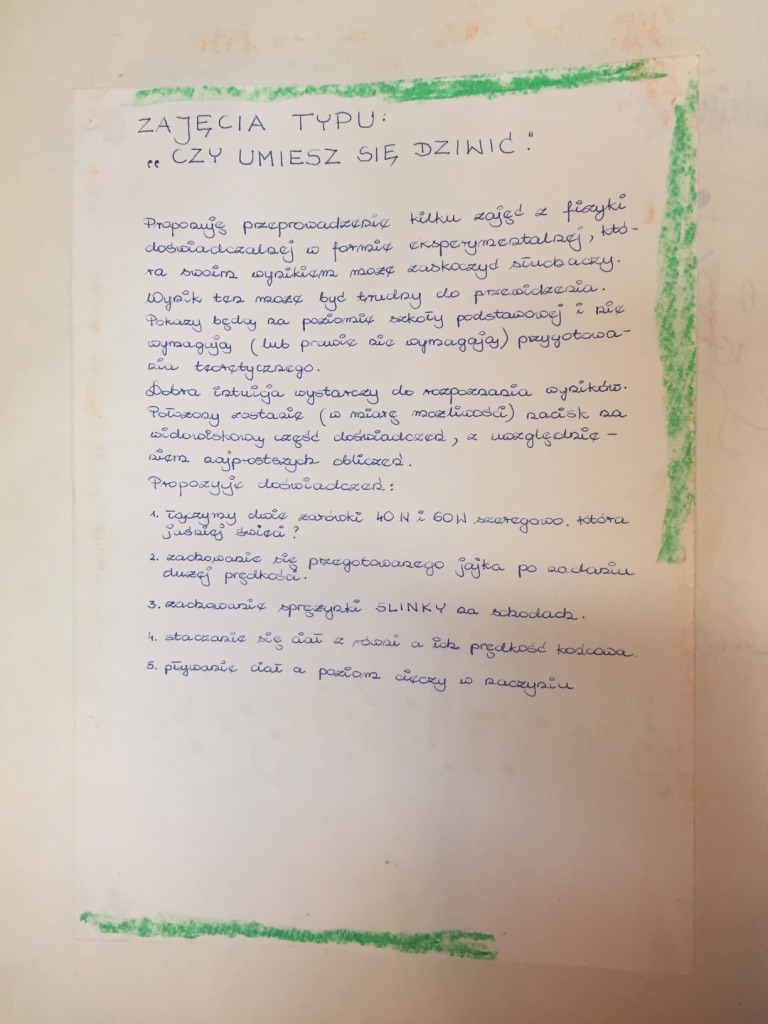 ZAJĘCIA TYPU:
„CZY UMIESZ SIĘ DZIWIĆ".
Proponuję przeprowadzenie kilku zajęć z fizyki
doświadczalnej w formie eksperymentalnej, któ-
ra swoim wynikiem może zaskoczyć słuchaczy.
Wynik ten może być trudny do przewidzenia.
Pokazy będą na poziomie szkoły podstawowej i nie
wymagają (lub prawie nie wymagają) przygotowa-
nia teoretycznego.
Dobra intuicja wystarczy do rozpoznania wyników.
Położony zostanie (w miarę możliwości) nacisk na
widowiskową część doświadczeń, z uwzględnie-
niem najprostszych obliczeń.
Propozycje doświadczeń:
1. łączymy dwie żarówki 40W i 60W szeregowo. Która
jaśniej świeci?
2. zachowanie się przegotowanego jajka po nadaniu
dużej prędkości.
3. zachowanie sprężynki SLINKY na schodach.
4. staczanie się ciał z równi a ich prędkość końcowa.
5. pływanie ciał a poziom cieczy w naczyniu